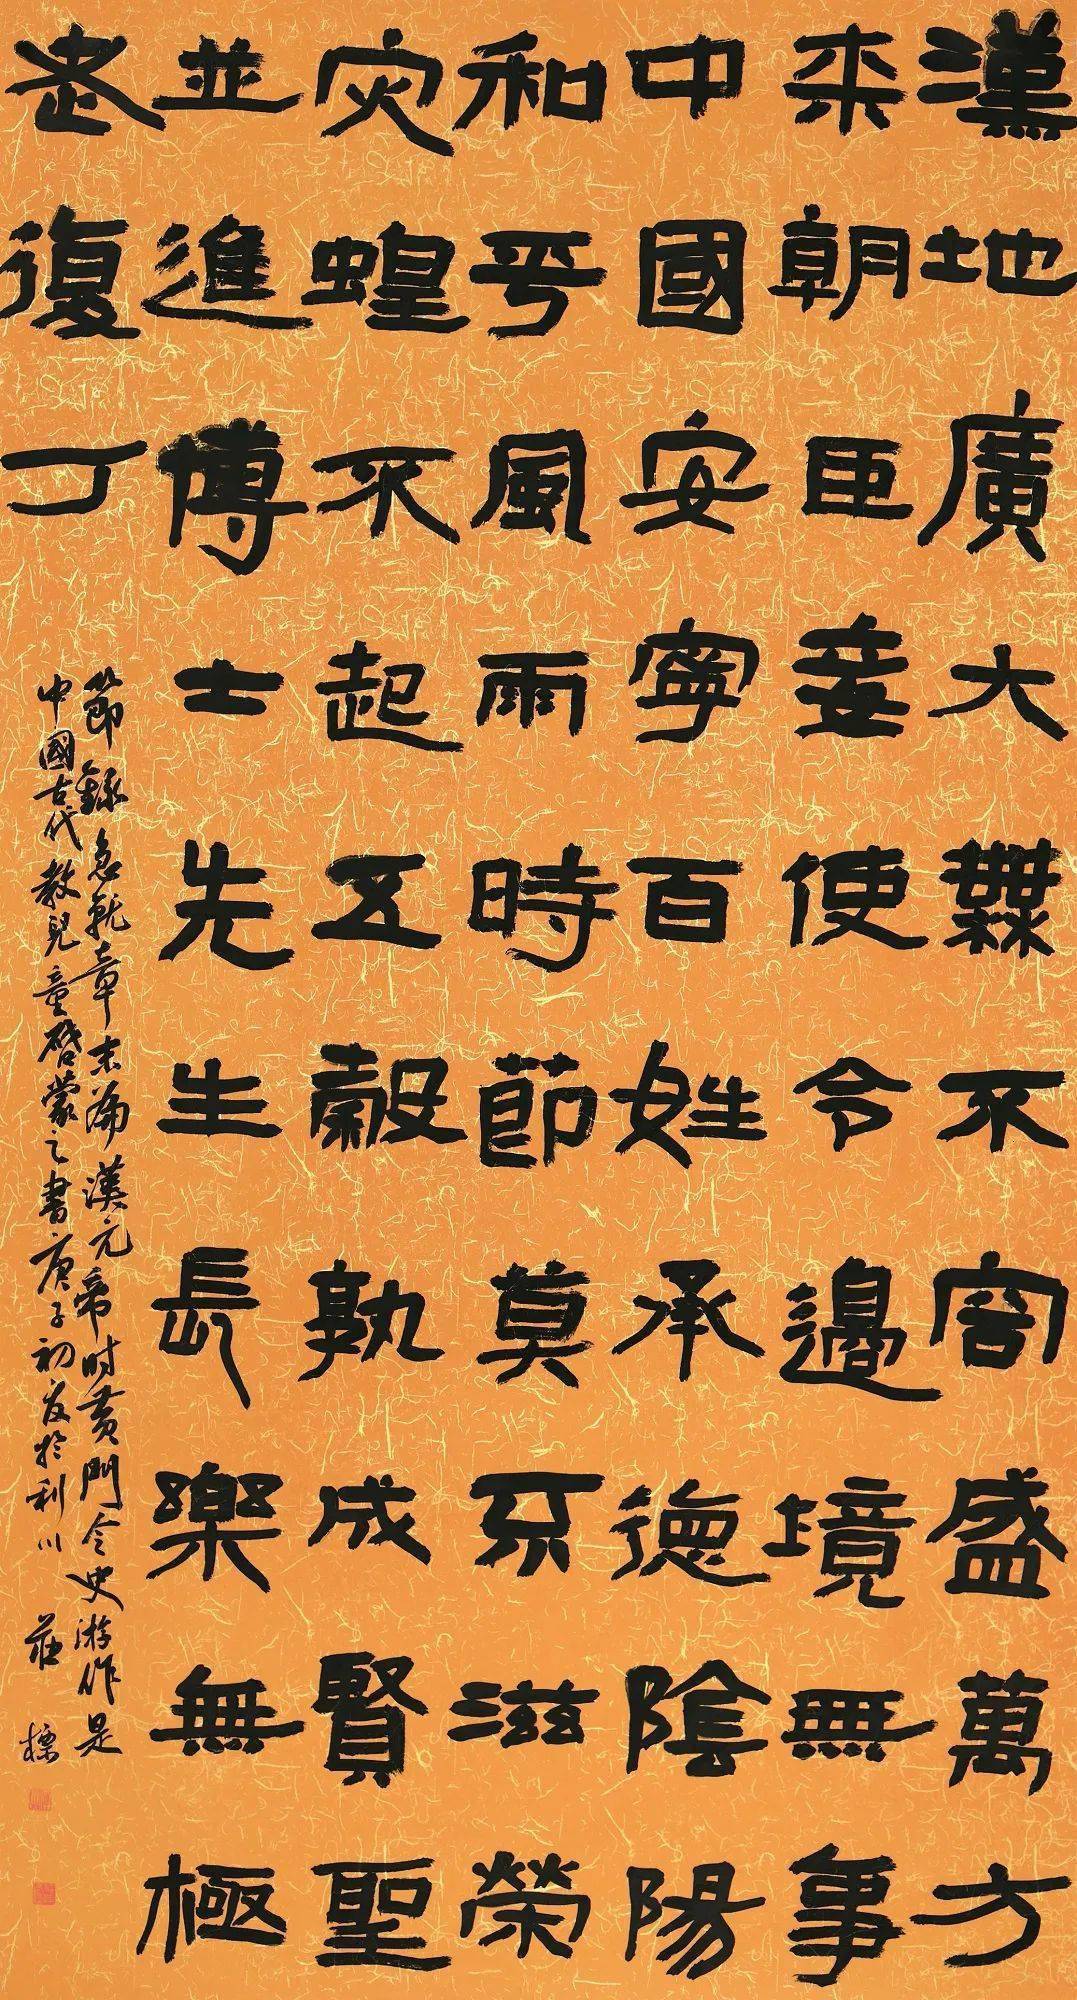 漢地廣大橆不容盛萬方
来朝臣妾使令邊境無事
中國安寧百姓承德陰陽
和平風雨時節莫不滋榮
灾蝗不起五穀孰成賢聖
並進博士先生長樂無極
老復丁
節錄急就章末篇漢元帝时黄門令史游作是
中國古代教兒童啓蒙之書庚子初夏於利川 莊標